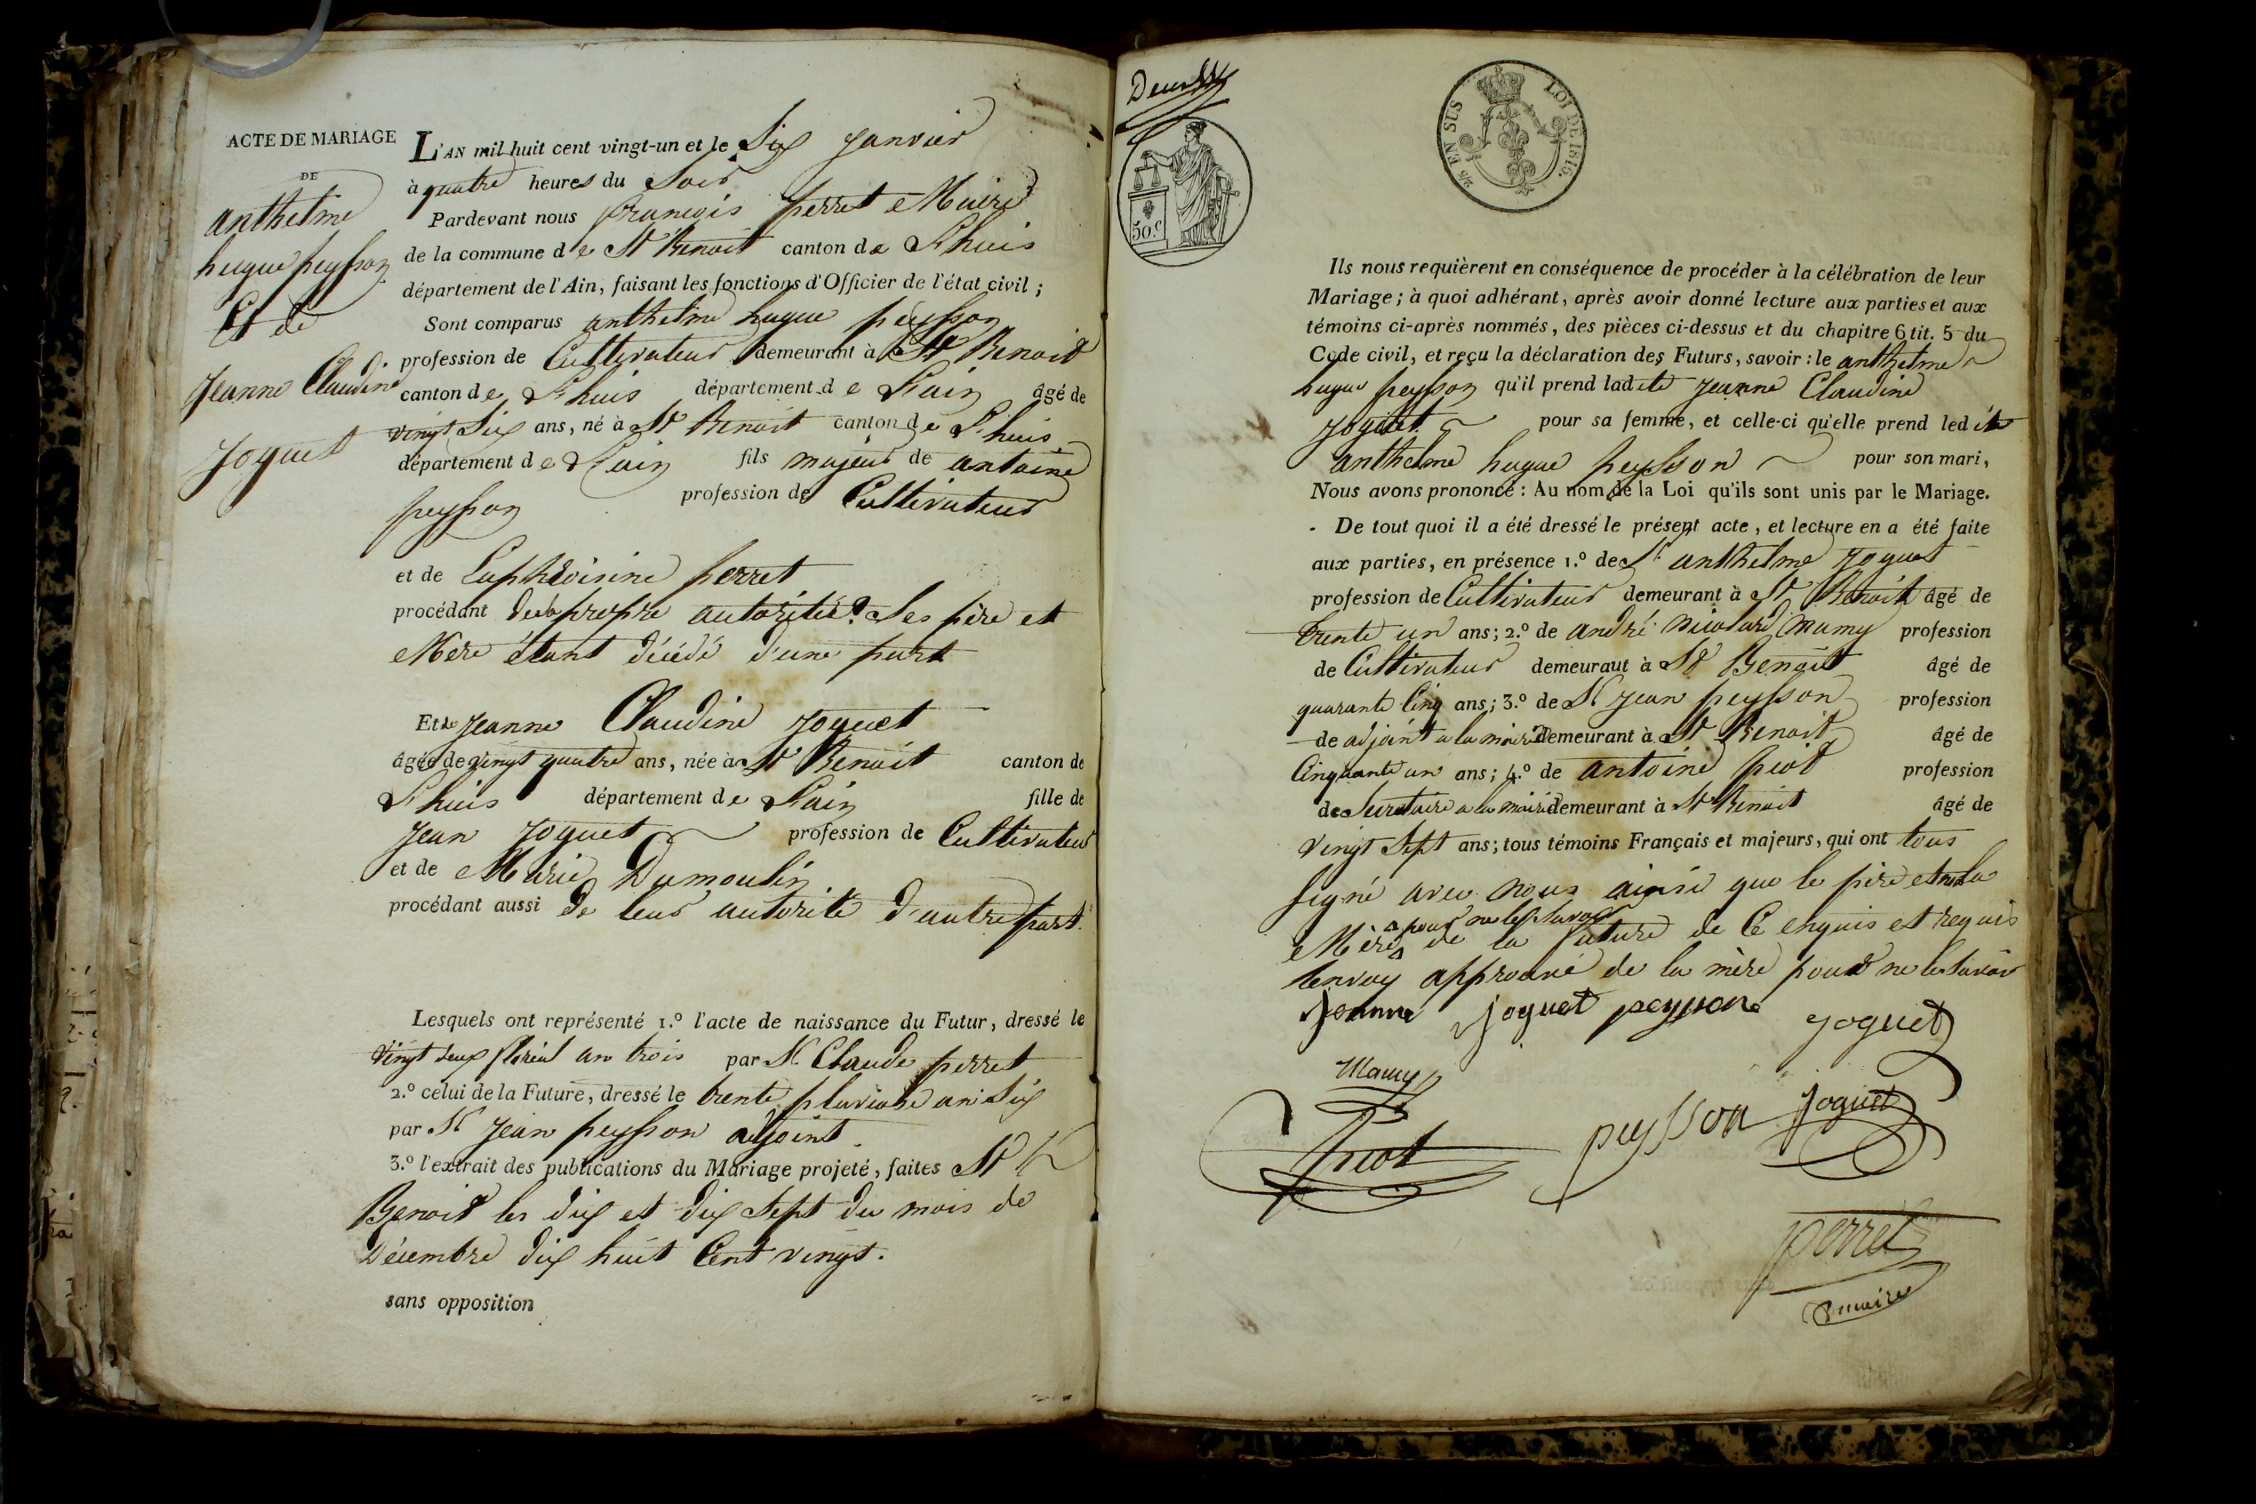 ACTE DE MARIAGE
DE
anthelme
hugue peysson
Et de
Jeanne Claudine
Joguet
L'AN mil huit cent vingt-un et le Six Janvier
à quatre heures du Soir
Pardevant nous francois perret Maire
de la commune de St Benoit canton de Lhuis
département de l'Ain, faisant les fonctions d'Officier de l'état civil ;
Sont comparus anthelme hugue peysson
profession de Cultivateur demeurant à St Benoit
canton de Lhuis département de Lain âgé de
vingt Six ans, né à St Benoit canton de Lhuis
département de Lain fils majeur de antoine
peysson profession de Cultivateur
et de Euphroisine perret
procédant de propre autorité Ses père et
Mere étant décédé d'une part
Et de Jeanne Claudine Joguet
âgée de vingt quatre ans, née à St Benoit canton de
Lhuis département de Lain fille de
Jean Joguet profession de Cultivateur
et de Marie Dumoulin
procédant aussi de leur autorité d'autre part.
Lesquels ont représenté 1.º l'acte de naissance du Futur, dressé le
vingt deux floréal an trois par Sr Claude perret
2.º celui de la Future, dressé le trente pluviose an Six
par Sr Jean peysson adjoint
3.º l'extrait des publications du Mariage projeté, faites St
Benoit les dix et dix Sept du mois de
Décembre dix huit Cent vingt.
sans opposition
50 c
2/5 EN SUS
LOI DE 1816.
Ils nous requièrent en conséquence de procéder à la célébration de leur
Mariage ; à quoi adhérant, après avoir donné lecture aux parties et aux
témoins ci-après nommés, des pièces ci-dessus et du chapitre 6 tit. 5 du
Code civil, et reçu la déclaration des Futurs, savoir : le anthelme
hugue peysson qu'il prend ladite Jeanne Claudine
Joguet pour sa femme, et celle-ci qu'elle prend ledit
anthelme hugue peysson pour son mari,
Nous avons prononcé : Au nom de la Loi qu'ils sont unis par le Mariage.
- De tout quoi il a été dressé le présent acte, et lecture en a été faite
aux parties, en présence 1.º de Sr anthelme Joguet
profession de Cultivateur demeurant à St Benoit âgé de
trente un ans ; 2.º de andré nicolard mamy profession
de Cultivateur demeuraut à St Benoit âgé de
quarante Cinq ans ; 3.º de Sr Jean peysson profession
de adjoint a la mairie demeurant à St Benoit âgé de
Cinquante un ans ; 4.º de antoine picot profession
de Secretaire a la mairie demeurant à St Benoit âgé de
vingt Sept ans ; tous témoins Français et majeurs, qui ont tous
Signé avec nous ainsi que le père et non la
pour ne le Savoir
Mère de la future de Ce enquis et requis
renvoy approuvé de la mère pour ne le Savoir
Jeanne Joguet peysson Joguet
Mamy
picot peysson Joguet
perret
maire